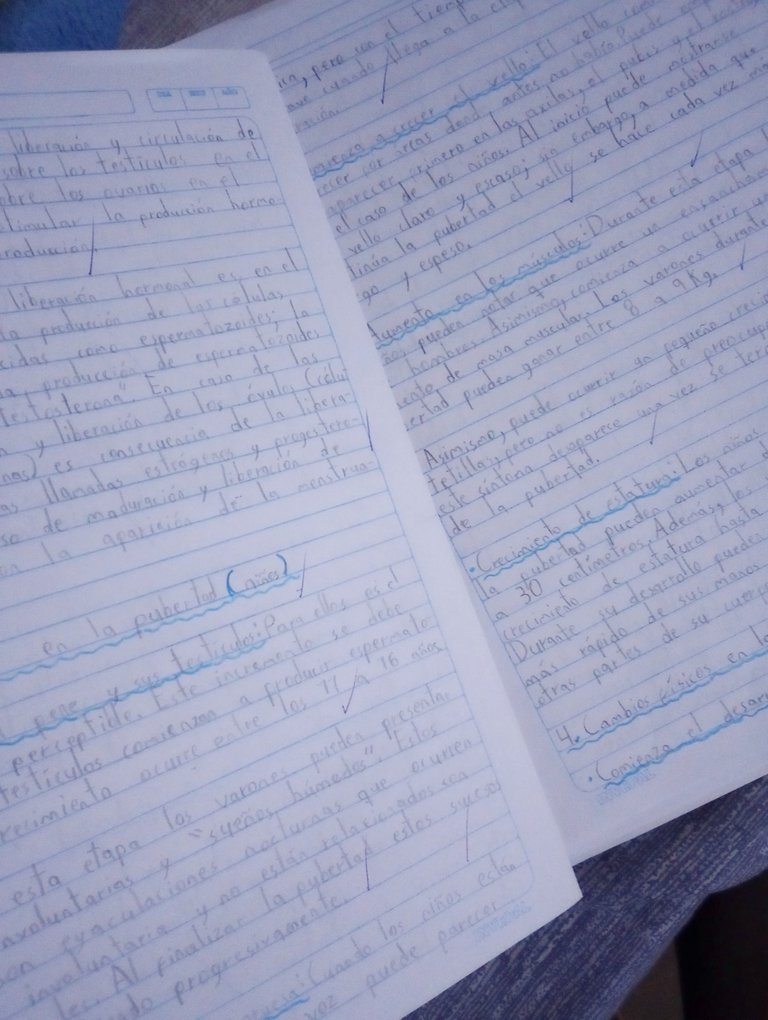 liberación y circulación de
sobre los testículos en el
sobre los ovarios en el
stimular la producción hormo-
roducción
liberación hormonal es, en el
la producción de las células
cidas como espermatozoides; la
a producción de espermatozoides
testosterona". En caso de las
n y liberación de los óvulos (célul
nas) es consecuencia de la libera-
as llamadas estrógenos y progestero-
so de maduración y liberación de
la aparición de la menstrua-
en la pubertad (niños)
pene y sus testículos: Para ellos es el
perceptible. Este incremento se debe
testículos comienzan a producir espermato-
recimiento ocurre entre los 11 a 16 años
esta etapa los varones pueden presentar
nvoluntarias y "sueños húmedos". Estos
on eyaculaciones nocturnas que ocurren
involuntaria y no están relacionados con
les. Al finalizar la pubertad estos sucesos
ndo progresivamente.
Cuando los niños están
voz puede parecer
ua, pero con el tiempo
ave cuando llega a la
ración.
mienza a crecer el vello: El vello
recer por áreas donde antes no había. Puede
aparecer primero en las axilas, el pubis y el
el caso de los niños. Al inicio puede mostrarse
vello claro y escaso; sin embargo, a medida que
tinúa la pubertad el vello se hace cada vez má
go y espeso.
Aumento en los músculos: Durante esta etapa l
ños pueden notar que ocurre un ensancham
hombros. Asimismo, comienza a ocurrir un
ento de masa muscular. Los varones durante
ertad pueden ganar entre 8 a 9 kg.
Asimismo, puede ocurrir un pequeño creci
tetillas, pero no es razón de preocup
este síntoma desaparece una vez se ter
de la pubertad.
• Crecimiento de estatura: Los niños
la pubertad pueden aumentar d
a 30 centímetros. Además, los
crecimiento de estatura hasta
Durante su desarrollo pueden
más rápido de sus manos
otras partes de su cuerpo
4. Cambios físicos en la
• Comienza el desar